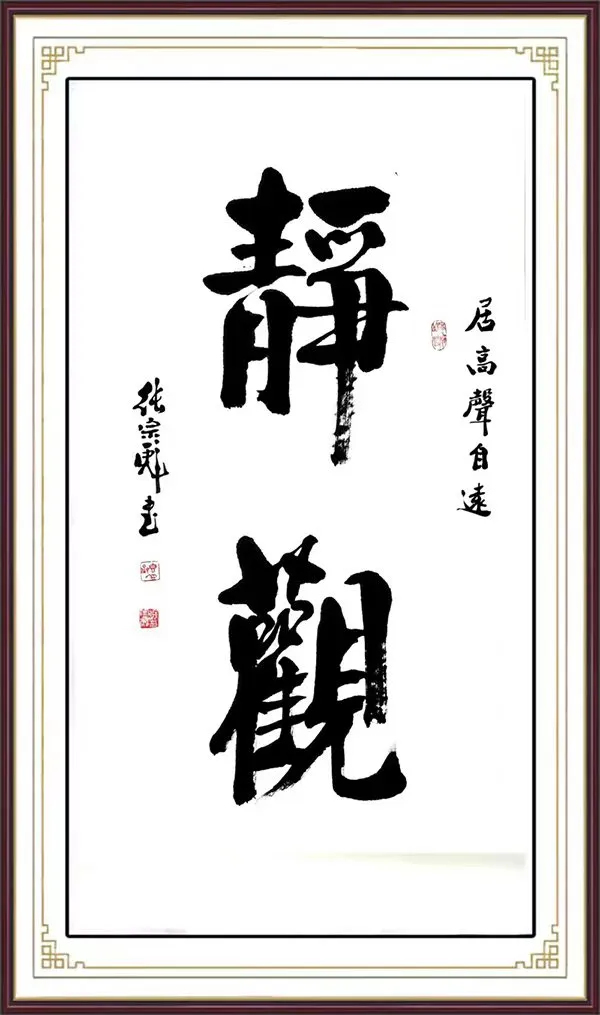 居高聲自遠
靜觀
張宗書